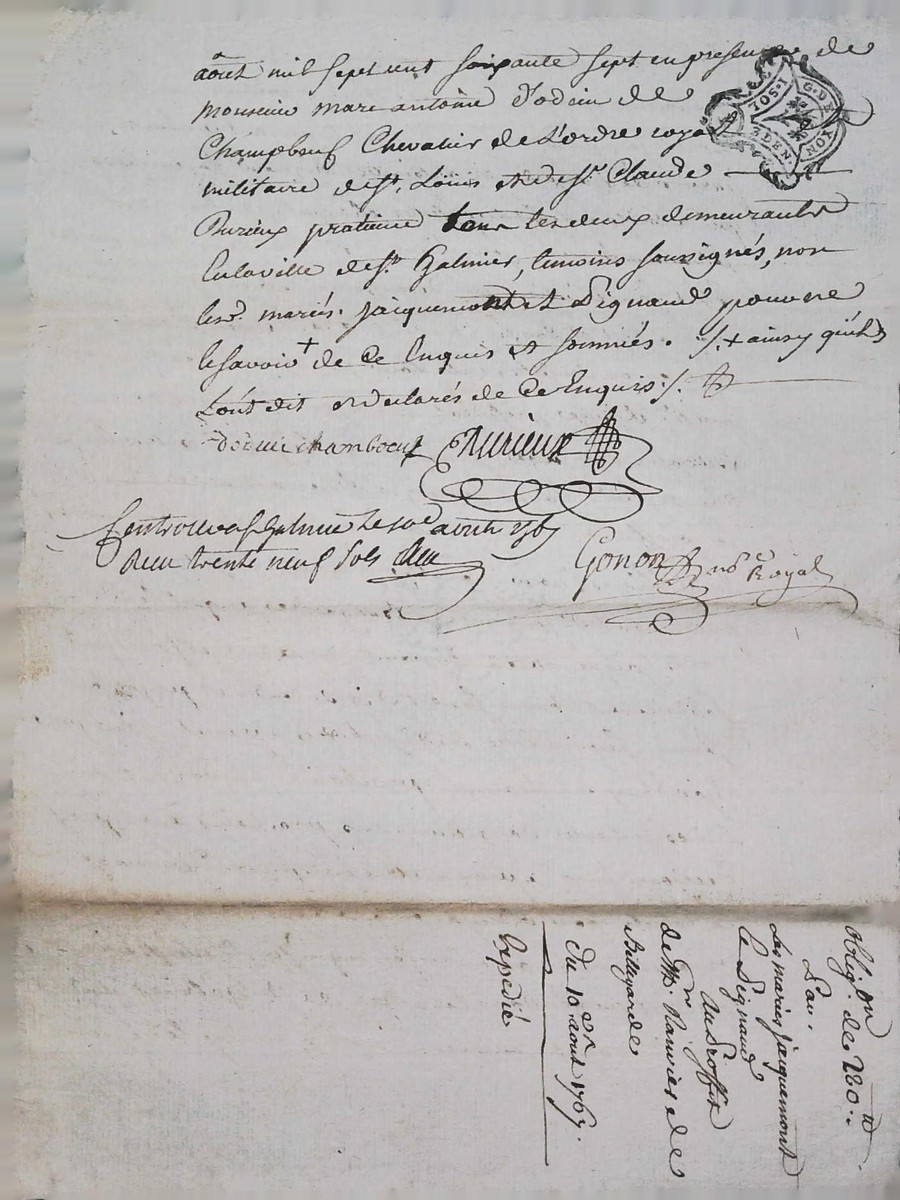 aôut mil sept cent soixante sept en presence de
Monsieur marc antoine Dodieu de
Champbeuf Chevalier de L'ordre royal
militaire de st. Louis et de sr. Claude
Purieux praticien tous les deux demeurants
En la ville de st. Galmier, temoins soussignés, non
lesd. mariés jacquemont et Pignaud pour ne
le savoir + de ce Enquis et sommés . /. + ainsy qu'ils
L'ont dit et declarés de ce Enquis /.
dodieu chamboeuf Purieux
Controllé a st Galmier le aout 1767
Recu trente neuf sols
Gonon not. Royal
G. DE LYON
1. SOL
Oblig.on de 280.tt
Par.
Les mariés jacquemont
le Pignaud
Au Proffit
de Mr. Ranvier de
Bellegarde
Du 10 aout 1767.
Expedié